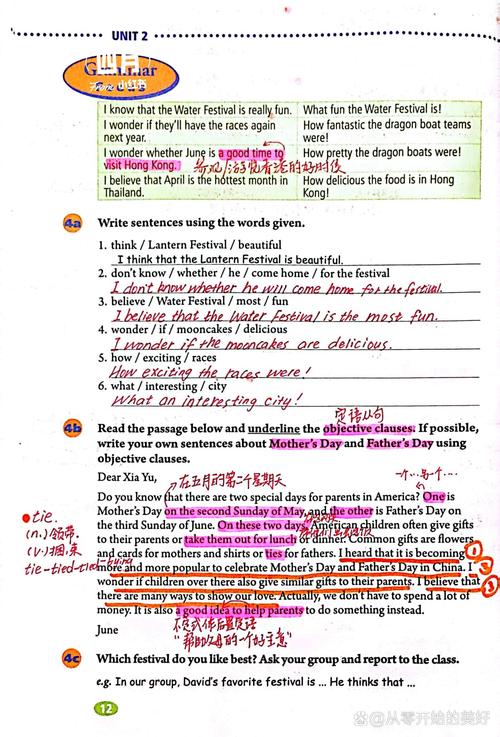 UNIT 2
四月
Grammar
From 小红书
I know that the Water Festival is really fun. What fun the Water Festival is!
I wonder if they'll have the races again next year. How fantastic the dragon boat teams were!
I wonder whether June is a good time to visit Hong Kong. How pretty the dragon boats were!
参观/游览香港的好时候
I believe that April is the hottest month in Thailand. How delicious the food is in Hong Kong!
4a Write sentences using the words given.
1. think / Lantern Festival / beautiful
I think that the Lantern Festival is beautiful.
2. don't know / whether / he / come home / for the festival
I don't know whether he will come home for the festival.
3. believe / Water Festival / most / fun
I believe that the Water Festival is the most fun.
4. wonder / if / mooncakes / delicious
I wonder if the mooncakes are delicious.
5. how / exciting / races
How exciting the races were!
6. what / interesting / city
What an interesting city!
宾语从句
4b Read the passage below and underline the objective clauses. If possible,
write your own sentences about Mother's Day and Father's Day using
objective clauses.
Dear Xia Yu,
在五月的第二个星期天
一个…另一个…
Do you know that there are two special days for parents in America? One is
Mother's Day on the second Sunday of May, and the other is Father's Day on
the third Sunday of June. On these two days, American children often give gifts
to their parents or take them out for lunch or dinner. Common gifts are flowers
and cards for mothers and shirts or ties for fathers. I heard that it is becoming ①
more and more popular to celebrate Mother's Day and Father's Day in China. I ②
wonder if children over there also give similar gifts to their parents. I believe that ③
there are many ways to show our love. Actually, we don't have to spend a lot of
money. It is also a good idea to help parents to do something instead.
tie.
(n.)领带.
(v.)捆,束
tie-tied-tied-tying
June
不定式作后置定语
"帮助父母的一个好主意"
4c Which festival do you like best? Ask your group and report to the class.
e.g. In our group, David's favorite festival is ... He thinks that ...
12
@从零开始的美好